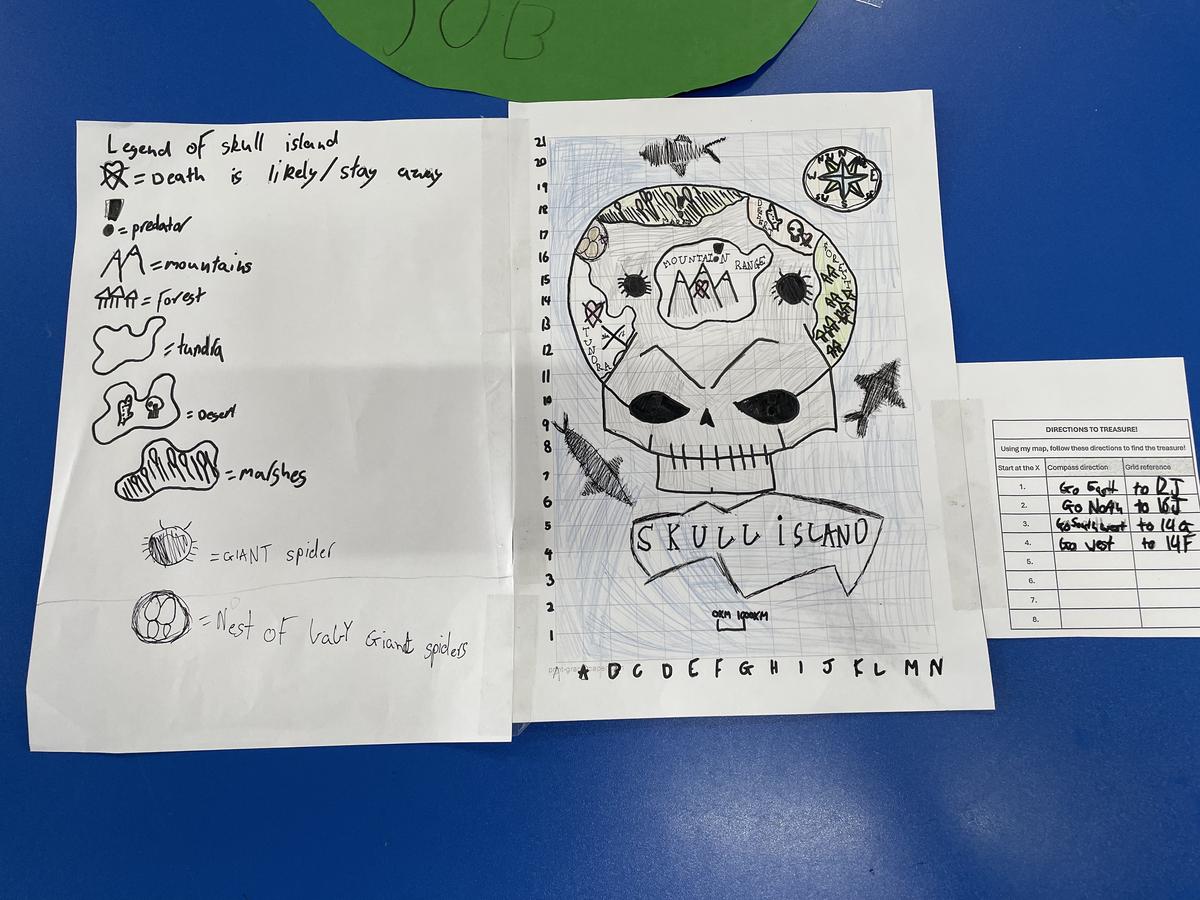 JOB
Legend of skull island
= Death is likely/stay away
= predator
= mountains
= Forest
= tundra
= Desert
= marshes
= GIANT spider
= Nest of baby Giant spiders
21
20
19
18
17
16
15
14
13
12
11
10
9
8
7
6
5
4
3
2
1
N
E
S
W
DESERT
FOREST
MOUNTAION RANGE
TUNDRA
SKULL iSLAND
0KM 1000KM
A B C D E F G H I J K L M N
DIRECTIONS TO TREASURE!
Using my map, follow these directions to find the treasure!
Start at the X Compass direction Grid reference
1. Go East to 12J
2. Go North to 16J
3. Go South west to 14G
4. Go west to 14F
5.
6.
7.
8.